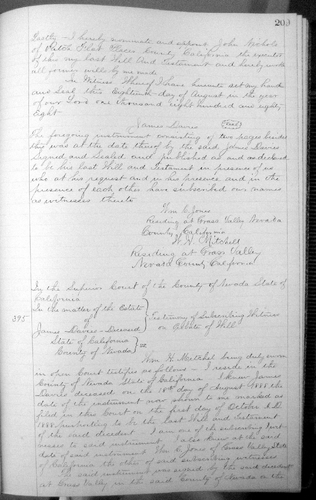 209
Lastly I hereby nominate and appoint John Nichols
of Dutch Flat Placer County California the executor
of this my last Will and Testament and hereby revoke
all former wills by me made
In Witness Whereof I have hereunto set my hand
and seal this Eighteenth day of August in the year
of our Lord one thousand eight hundred and eighty
Eight
James Davies (Seal)
The foregoing instrument consisting of two pages besides
this was at the date thereof by the said James Davies
Signed and sealed and published as and declared
to be his last Will and Testament in presence of us
who at his request and in his presence and in the
presence of each other have subscribed our names
as witnesses thereto.
Wm C Jones
Residing at Grass Valley Nevada
County, California
W. H. Mitchell
Residing at Grass Valley
Nevada County California
In the Superior Court of the County of Nevada State of
California
In the matter of the Estate
of
James Davies - Deceased
Testimony of Subscribing Witness
on Probate of Will
395
State of California
County of Nevada } ss
Wm H. Mitchell being duly sworn
in open Court testifies as follows - I reside in the
County of Nevada State of California - I knew James
Davies deceased on the 18th day of August 1888 the
date of the instrument now shown to me marked as
filed in this Court on the first day of October A.D.
1888 purporting to be the last Will and Testament
of the said decedent. I am one of the subscribing wit-
nesses to said instrument. I also knew at the said
date of said instrument Wm C Jones of Grass Valley State
of California the other of said subscribing witnesses
The said instrument was signed by the said decedent
at Grass Valley in the said County of Nevada on the